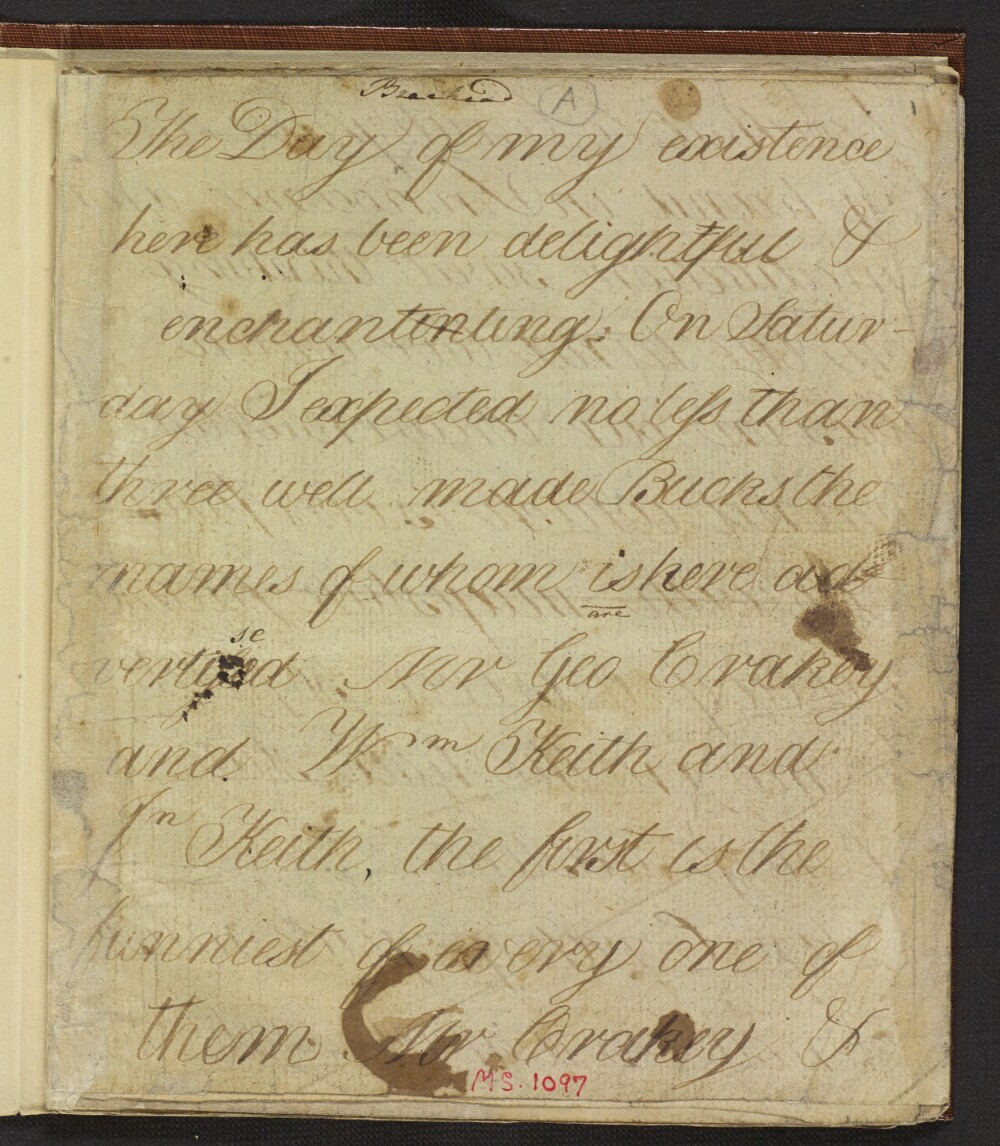 Braehead
A
The Day of my existence
here has been delightful &
enchantinting. On Satur-
day I expected no less than
three well made Bucks the
names of whom is here ad
are
se
vertised Mr Geo Crakey
and Wm Keith and
Jn Keith, the first is the
funniest of every one of
them Mr Crakey &
MS. 1097